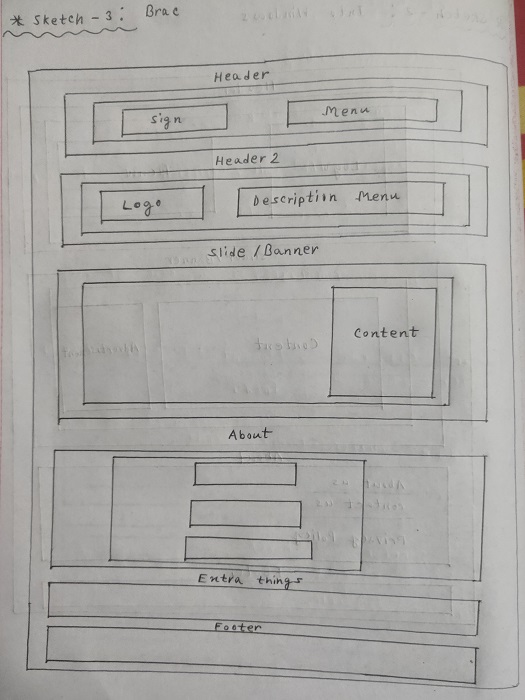 * Sketch - 3: Brac
Header
Sign Menu
Header 2
Logo Description Menu
Slide / Banner
Content
About
Extra things
Footer